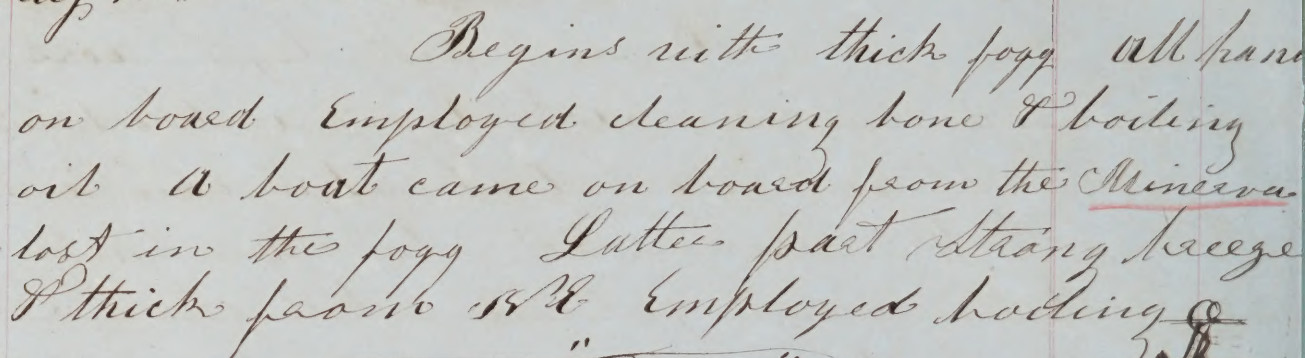 Begins with thick fogg all hand
on board Employed cleaning bone & boiling
oil A boat came on board from the Minerva
lost in the fogg Latter part Strong breeze
& thick from NE Employed boiling